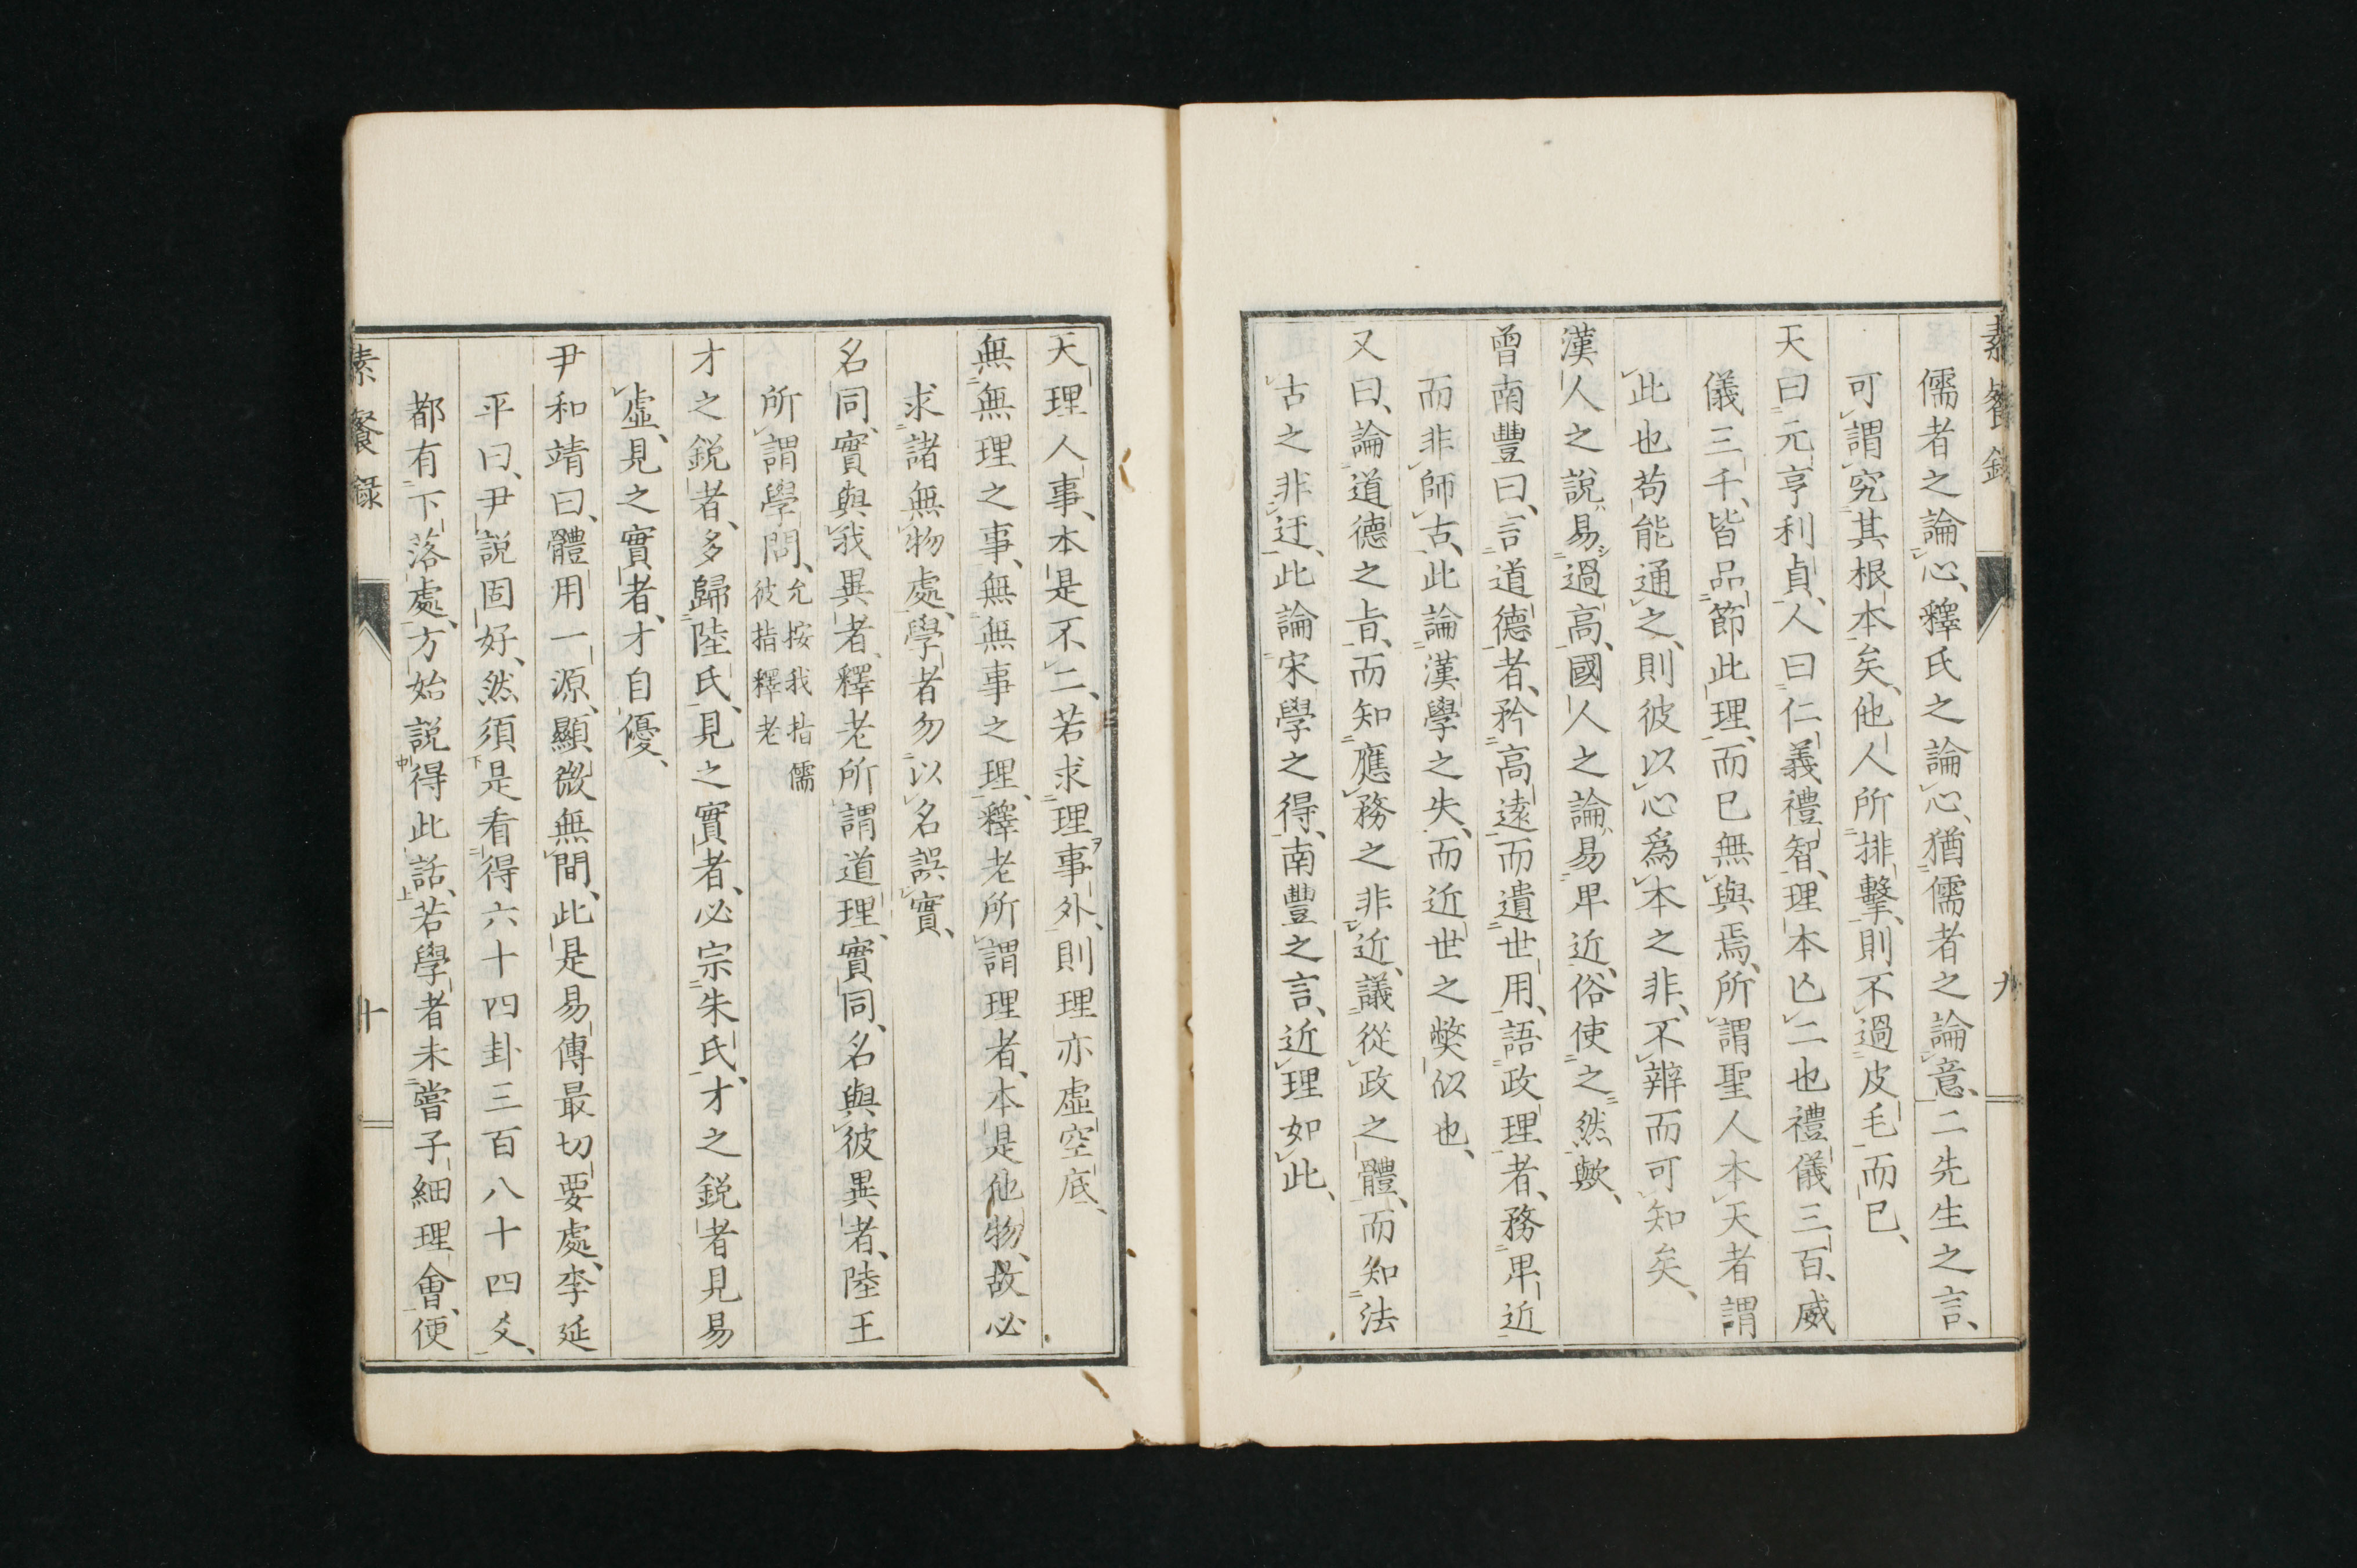 素餐錄
九
儒者之論心、釋氏之論心、猶儒者之論意、二先生之言、
可謂究其根本矣、他人所排擊、則不過皮毛而已、
天曰元亨利貞、人曰仁義禮智、理本匕二也禮儀三百、威
儀三千、皆品節此理、而已無與焉、所謂聖人本天者謂
此也苟能通之、則彼以心爲本之非、不辨而可知矣、
漢人之說易過高、國人之論易卑近、俗使之然歟、
曾南豐曰、言道德者、矜高遠而遺世用、語政理者、務卑近
而非師古、此論漢學之失、而近世之獘似也、
又曰、論道德之旨、而知應務之非近、議從政之體、而知法
古之非迂、此論宋學之得、南豐之言、近理如此、
天理人事、本是不二、若求理事外、則理亦虛空底、
無無理之事、無無事之理、釋老所謂理者、本是他物、故必
求諸無物處、學者勿以名誤實、
名同、實與我異者、釋老所謂道理、實同、名與彼異者、陸王
所謂學問、允按我指儒
彼指釋老
才之鋭者、多歸陸氏、見之實者、必宗朱氏、才之鋭者見易
虛、見之實者、才自優、
尹和靖曰、體用一源、顯微無間、此是易傳最切要處、李延
平曰、尹說固好、然須是看得六十四卦三百八十四爻、
都有下落處、方始說得此話、若學者未嘗子細理會、便
素餐錄
十